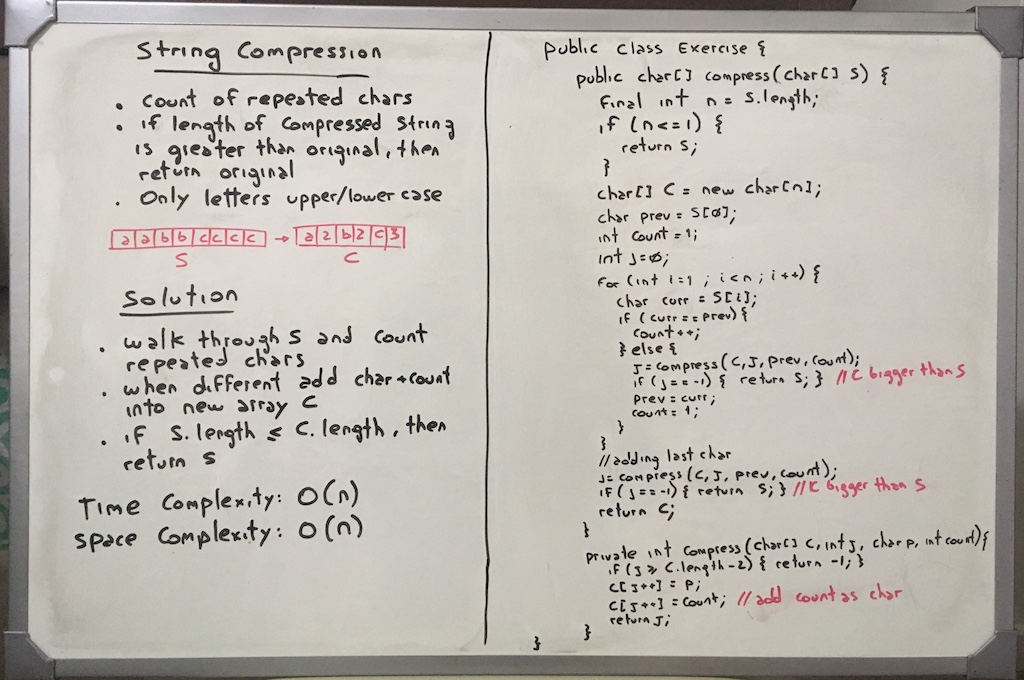 String Compression
• count of repeated chars
• if length of compressed string
is greater than original, then
return original
• Only letters upper/lower case
a a b b c c c c → a 2 b 2 c 3
S C
Solution
• walk through S and count
repeated chars
• when different add char+count
into new array C
• if S.length ≤ C.length, then
return S
Time Complexity: O(n)
Space Complexity: O(n)
public class Exercise {
public char[] compress(char[] S) {
final int n = S.length;
if (n<=1) {
return S;
}
char[] C = new char[n];
char prev = S[0];
int count = 1;
int j=0;
for (int i=1 ; i<n ; i++) {
char curr = S[i];
if (curr == prev) {
count++;
} else {
j=compress(C,j,prev,count);
if (j==-1) { return S; } //C bigger than S
prev = curr;
count = 1;
}
}
//adding last char
j= compress(C, j, prev, count);
if (j==-1) { return S; } //C bigger than S
return C;
}
private int compress(char[] C, int j, char p, int count){
if (j ≥ C.length-2) { return -1; }
C[j++] = p;
C[j++] = count; //add count as char
return j;
}
}